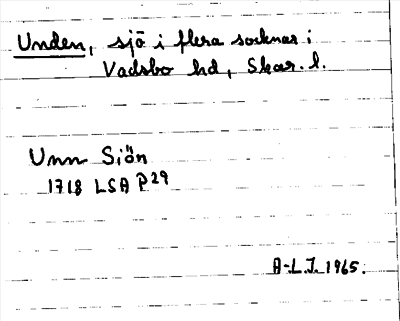 Unden, sjö i flera socknar i
Vadsbo hd, Skar. l.
Unn Siön
1718 LSA P29
A-L.J. 1965.